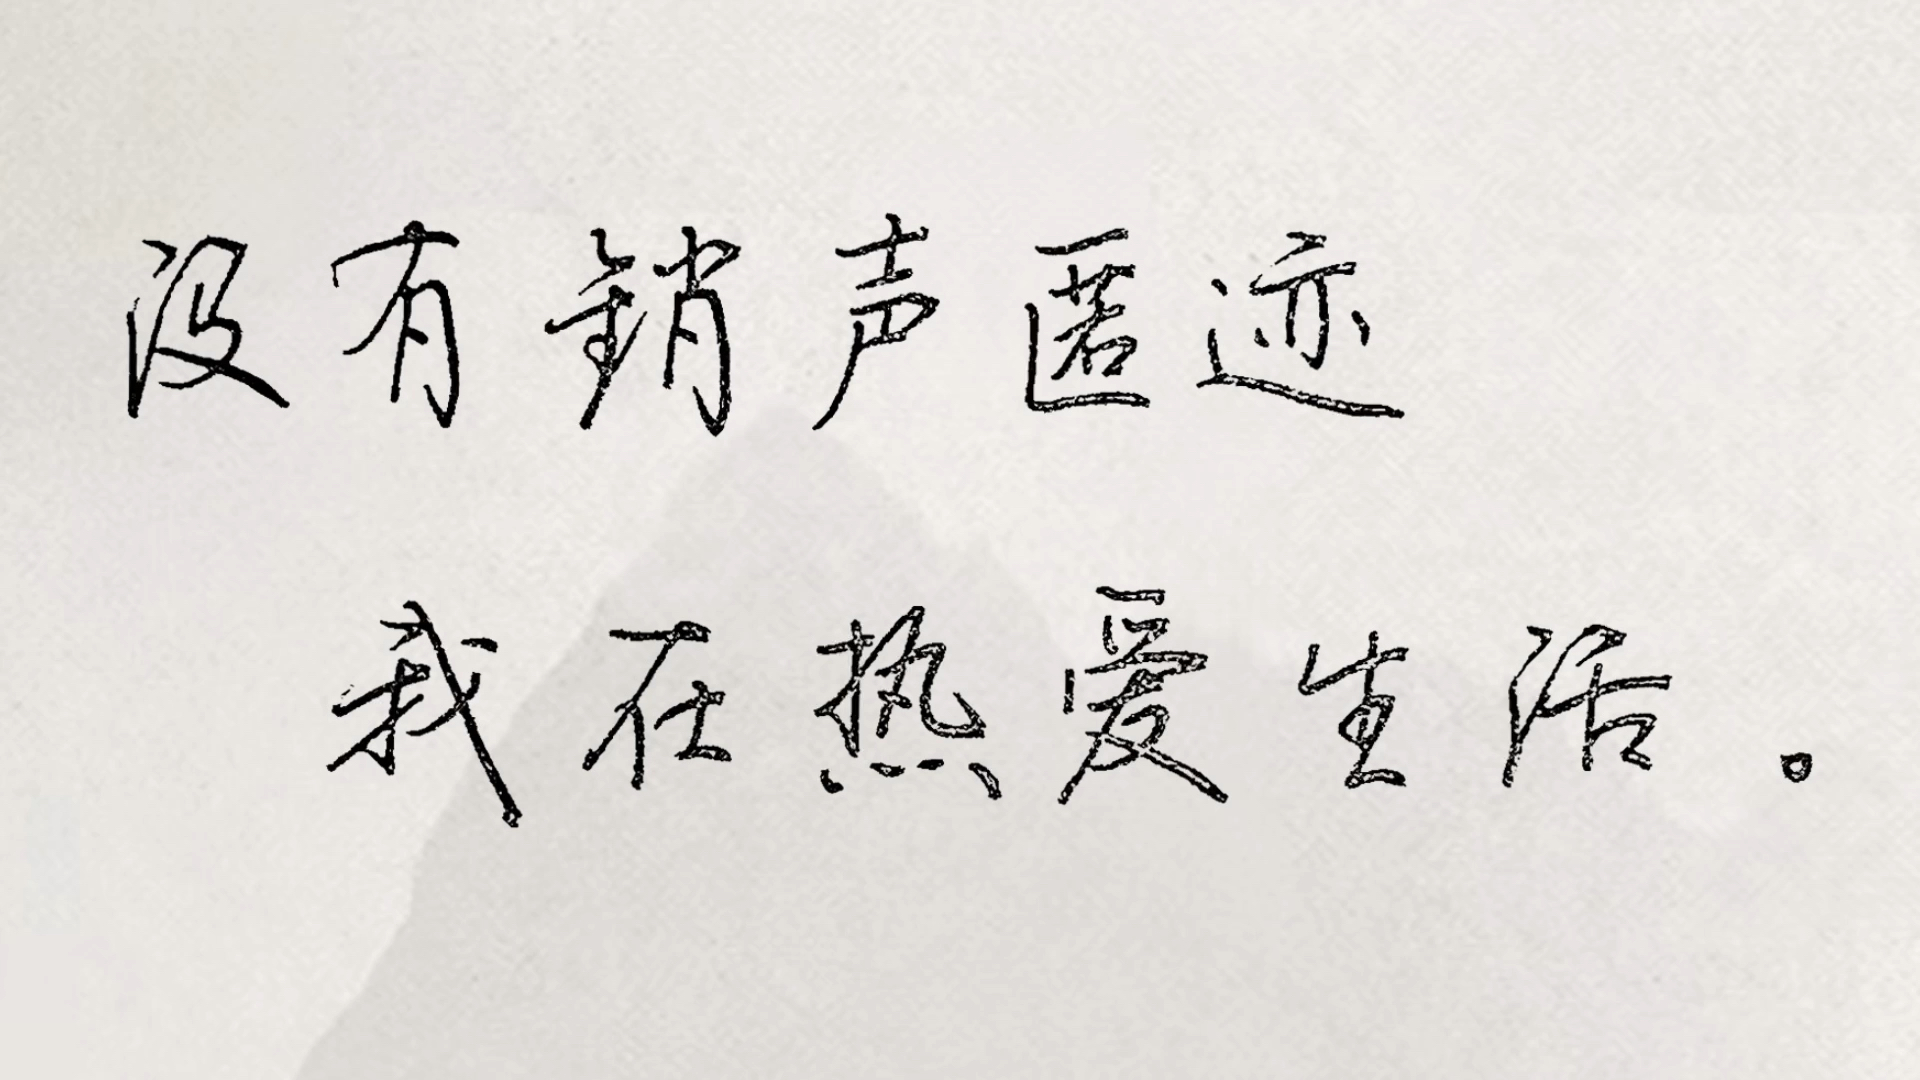 没有销声匿迹
我在热爱生活。